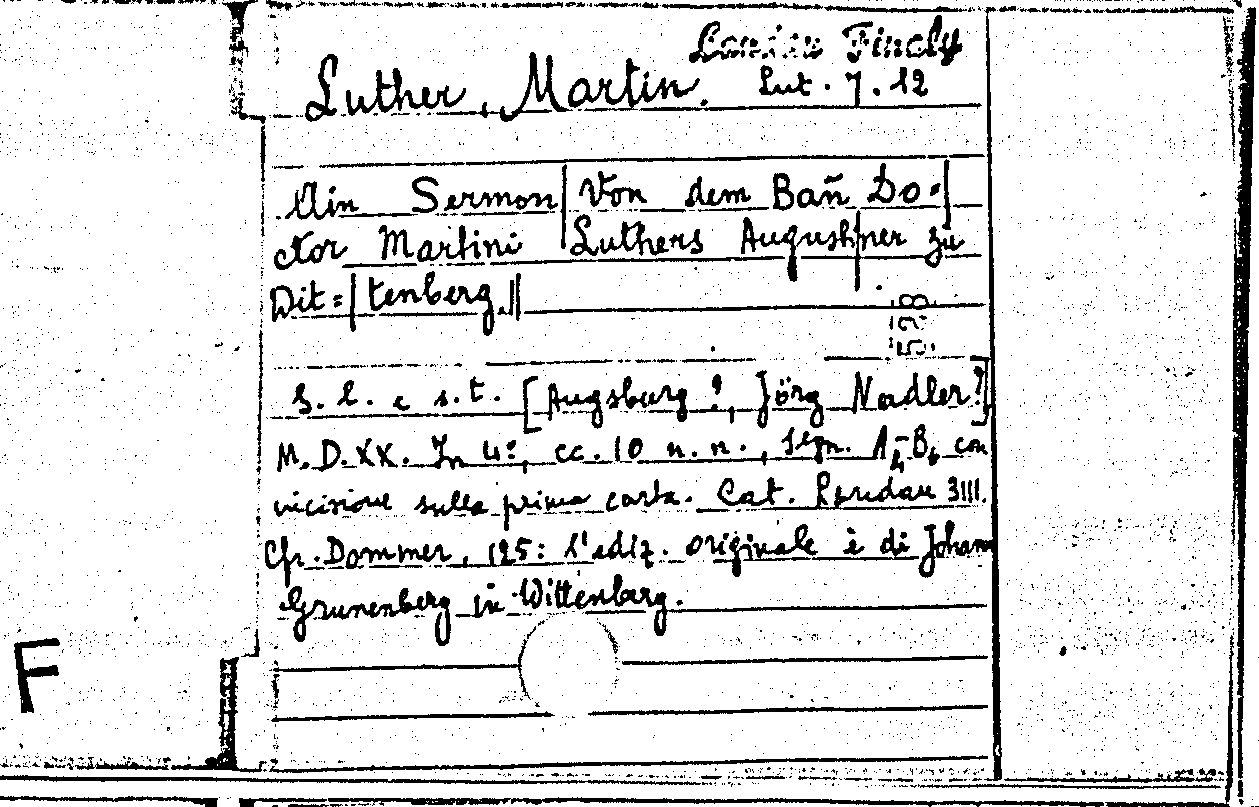 Landau Finaly
Luther, Martin. Lut. 7. 12
Ain Sermon| Von dem Bañ Do=|
ctor Martini |Luthers August|iner zu
Wit=| tenberg.||
528
S. l. e s. t. [Augsburg?, Jörg Nadler?]
M. D. XX. In 4º, cc. 10 n. n., segn. A4-B6 con
incisione sulla prima carta. Cat. Landau 3III.
Cfr. Dommer, 125: l'ediz. originale è di Johann
Grunenberg in Wittenberg.
F